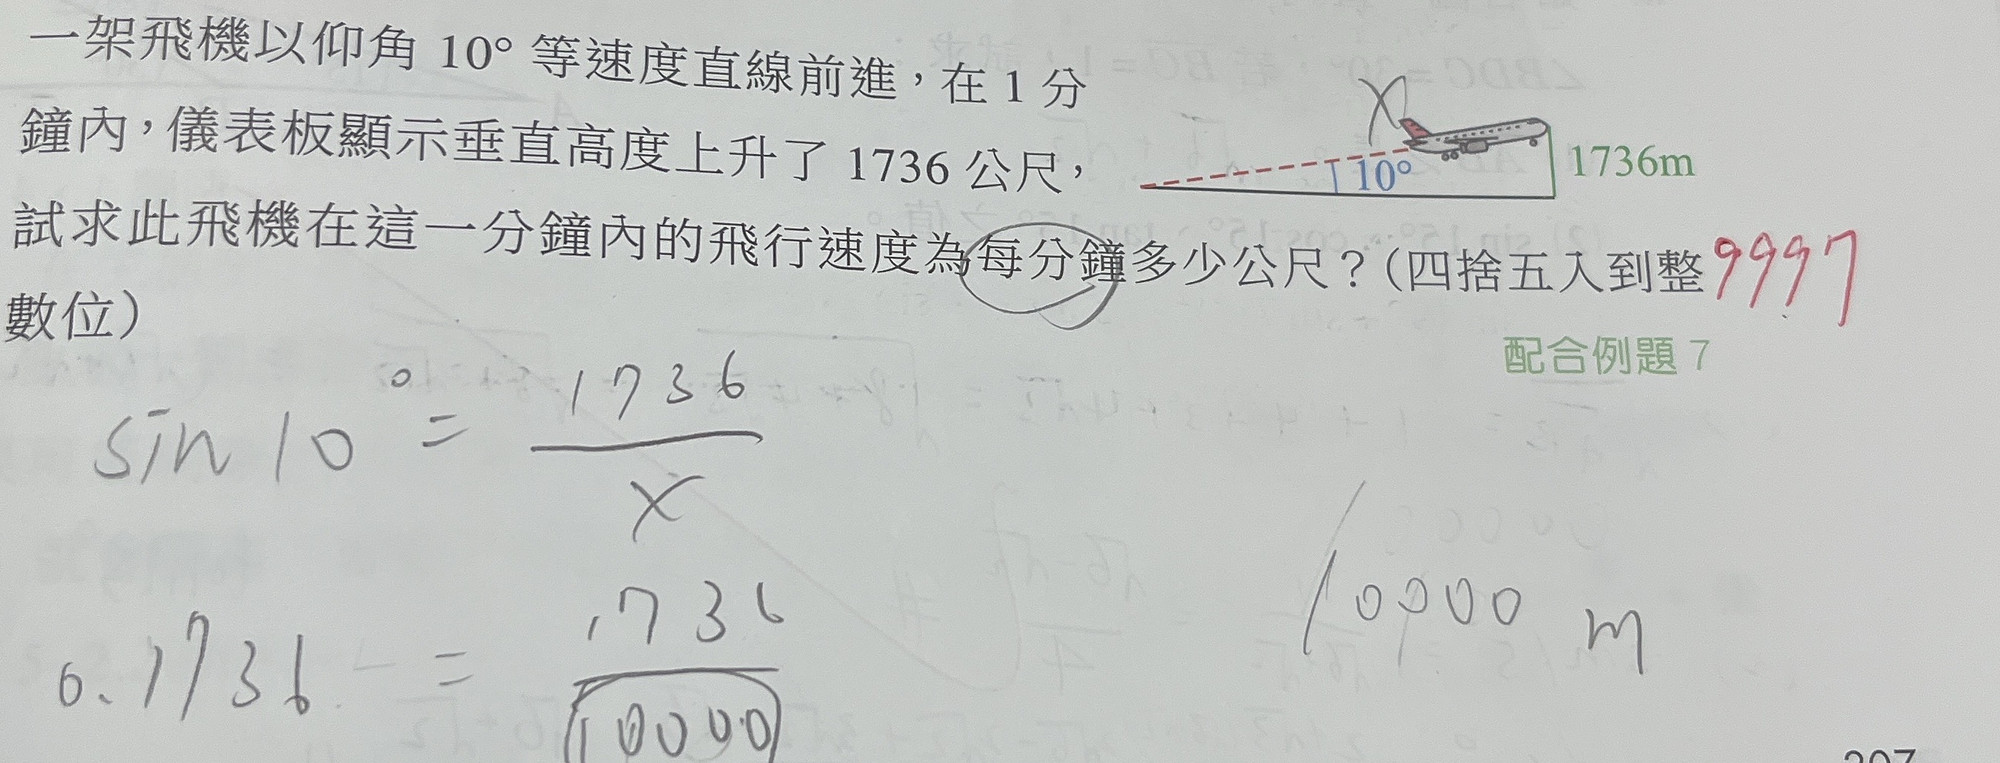 一架飛機以仰角 10° 等速度直線前進，在 1 分
鐘內，儀表板顯示垂直高度上升了 1736 公尺，
試求此飛機在這一分鐘內的飛行速度為每分鐘多少公尺？（四捨五入到整
數位）
9997
x
10°
1736m
配合例題 7
sin 10° = 1736
x
0.1736 = 1736
10000
10000 m